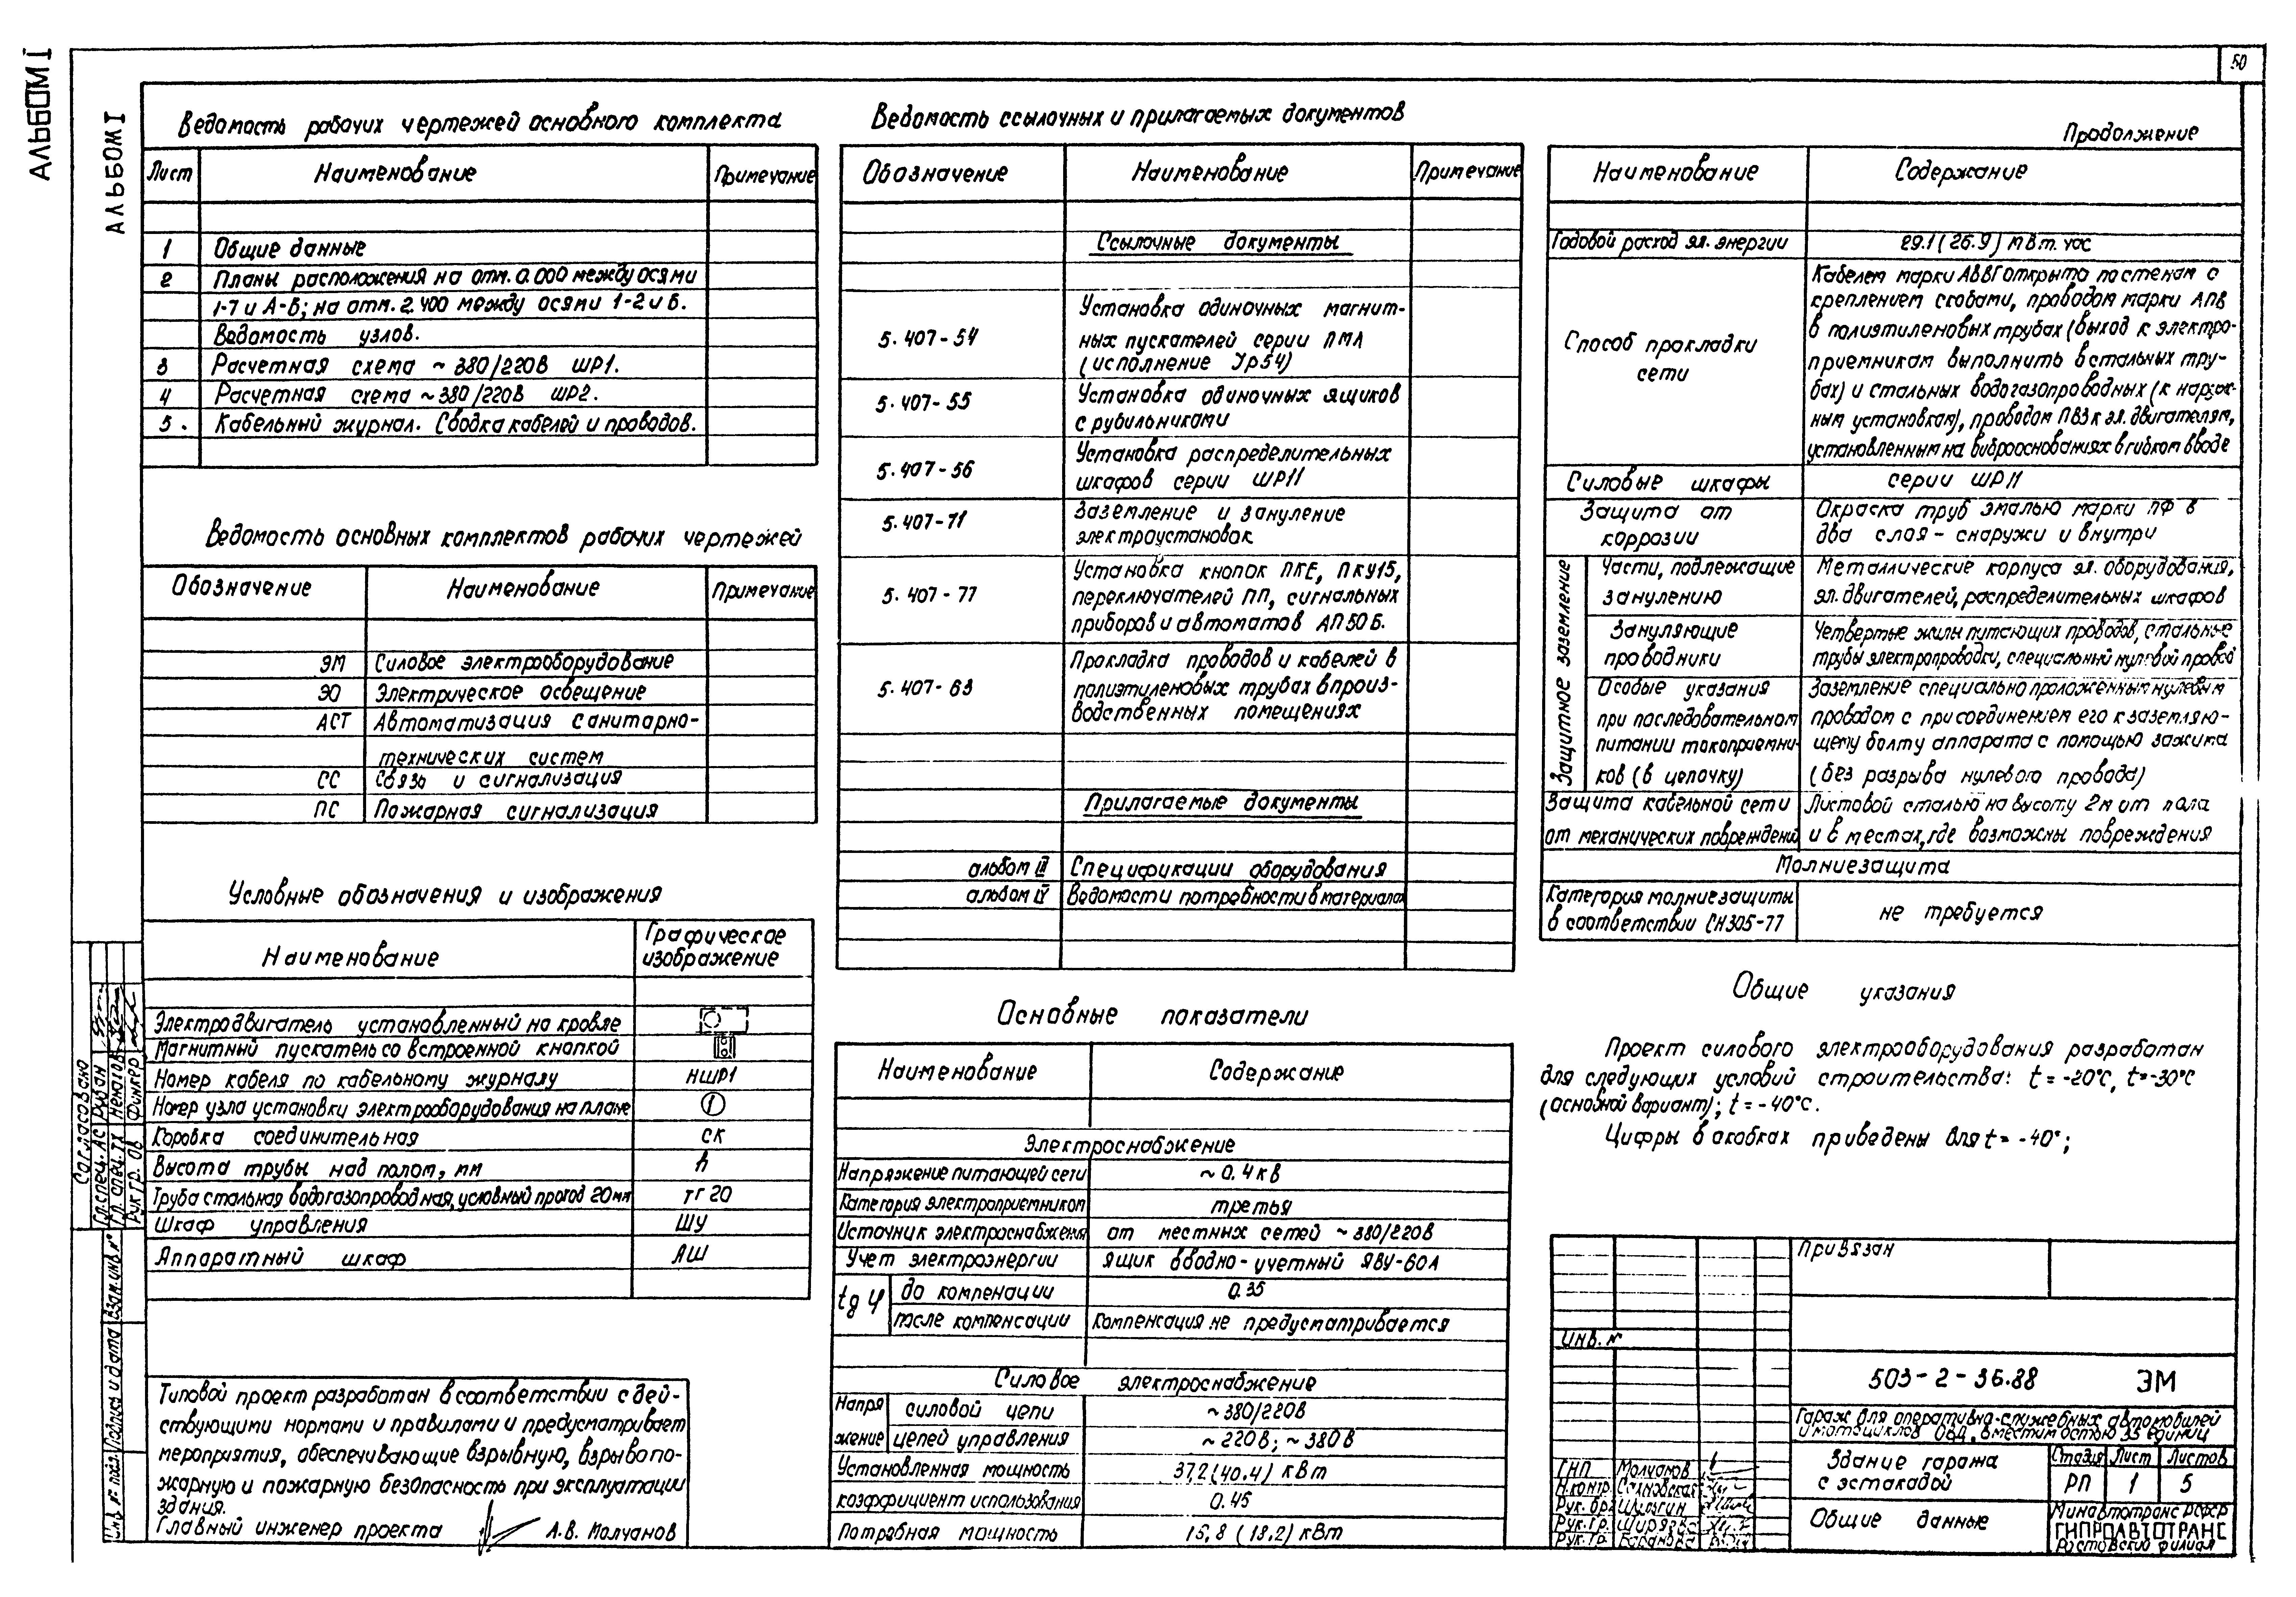 АЛЬБОМ I
АЛЬБОМ I
50
Ведомость рабочих чертежей основного комплекта
Лист Наименование Примечание
1 Общие данные
2 Планы расположения на отм. 0.000 между осями
1-7 и А-Б; на отм. 2.400 между осями 1-2 и Б.
Ведомость узлов.
3 Расчетная схема ~380/220В ШР1.
4 Расчетная схема ~380/220В ШР2.
5. Кабельный журнал. Сводка кабелей и проводов.
Ведомость основных комплектов рабочих чертежей
Обозначение Наименование Примечание
ЭМ Силовое электрооборудование
ЭО Электрическое освещение
АСТ Автоматизация санитарно-
технических систем
СС Связь и сигнализация
ПС Пожарная сигнализация
Условные обозначения и изображения
Наименование Графическое
изображение
Электродвигатель установленный на кровле
Магнитный пускатель со встроенной кнопкой
Номер кабеля по кабельному журналу НШР1
Номер узла установки электрооборудования на плане 1
Коробка соединительная СК
Высота трубы над полом, мм h
Труба стальная водогазопроводная, условный проход 20мм тг 20
Шкаф управления ШУ
Аппаратный шкаф АШ
Типовой проект разработан в соответствии с дей-
ствующими нормами и правилами и предусматривает
мероприятия, обеспечивающие взрывную, взрывопо-
жарную и пожарную безопасность при эксплуатации
здания.
Главный инженер проекта А.В. Молчанов
Ведомость ссылочных и прилагаемых документов
Обозначение Наименование Примечание
Ссылочные документы
5.407-54 Установка одиночных магнит-
ных пускателей серии ПМЛ
(исполнение УР54)
5.407-55 Установка одиночных ящиков
с рубильниками
5.407-56 Установка распределительных
шкафов серии ШР11
5.407-11 Заземление и зануление
электроустановок
5.407-77 Установка кнопок ПКЕ, ПКУ15,
переключателей ПП, сигнальных
приборов и автоматов АП50Б.
5.407-63 Прокладка проводов и кабелей в
полиэтиленовых трубах в произ-
водственных помещениях
Прилагаемые документы
альбом III Спецификации оборудования
альбом IV Ведомости потребности в материалах
Основные показатели
Наименование Содержание
Электроснабжение
Напряжение питающей сети ~0.4кВ
Категория электроприемников третья
Источник электроснабжения от местных сетей ~380/220В
Учет электроэнергии ящик вводно-учетный ЯВУ-60А
tg φ до компенации 0.35
после компенсации Компенсация не предусматривается
Силовое электроснабжение
Напря силовой цепи ~380/220В
жение цепей управления ~220В; ~380В
Установленная мощность 37,2(40.4) кВт
коэффициент использования 0.45
Потребная мощность 15,8 (18.2) кВт
Продолжение
Наименование Содержание
Годовой расход эл. энергии 29.1(26.9) МВт. час
Способ прокладки
сети
Кабелем марки АВВГ открыто по стенам с
креплением скобами, проводом марки АПВ
в полиэтиленовых трубах (выход к электро-
приемникам выполнить в стальных тру-
бах) и стальных водогазопроводных (к наруж-
ным установкам), проводом ПВ3 к эл. двигателям,
установленным на виброоснованиях в гибком вводе
Силовые шкафы серии ШР11
Защита от
коррозии
Окраска труб эмалью марки ПФ в
два слоя - снаружи и внутри
Защитное заземление
Части, подлежащие
занулению
Металлические корпуса эл. оборудования,
эл. двигателей, распределительных шкафов
Зануляющие
проводники
Четвертые жилы питающих проводов, стальные
трубы электропроводки, специальный нулевой провод
Особые указания
при последовательном
питании токоприемни-
ков (в цепочку)
Заземление специально проложенным нулевым
проводом с присоединением его к заземляю-
щему болту аппарата с помощью зажима
(без разрыва нулевого провода)
Защита кабельной сети
от механических повреждений
Листовой сталью на высоту 2м от пола
и в местах, где возможны повреждения
Молниезащита
Категория молниезащиты
в соответствии СН305-77
не требуется
Общие указания
Проект силового электрооборудования разработан
для следующих условий строительства: t=-20°С, t=-30°С
(основной вариант); t=-40°С.
Цифры в скобках приведены для t=-40°;
Привязан
Инв. №
503-2-36.88 ЭМ
Гараж для оперативно-служебных автомобилей
и мотоциклов ОВД, вместимостью 35 единиц
Здание гаража
с эстакадой
Стадия Лист Листов
РП 1 5
Общие данные
Минавтотранс РСФСР
ГИПРОАВТОТРАНС
Ростовский филиал
ГИП Молчанов
Н.контр.
Рук. бр.
Рук. гр.
Рук. гр.
Согласовано
Гл. спец. АС Рубан
Гл. спец. ТХ
Рук. гр. ОВ Финкер
Взам. инв. №
Подпись и дата
Инв. № подл.